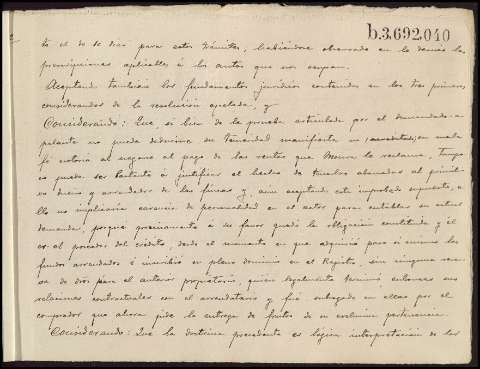 b.3.692.040
to el de de dias para estos trámites, habiéndose observado en lo demás las
prescripciones aplicables á los autos que nos ocupan.
Aceptando también los fundamentos jurídicos contenidos en los tres primeros
considerandos de la resolución apelada; y
Considerando: Que, si bien de la prueba articulada por el demandado a-
pelante no puede deducirse su temeridad manifiesta ni su mala
fé notoria al negarse al pago de las rentas que le reclama, tampo-
co puede ser bastante á justificar el hecho de tenerlas abonadas al primiti-
vo dueño y arrendador de las fincas y, aún aceptado este improbado supuesto, e-
llo no implicaría carencia de personalidad en el actor para entablar su actual
demanda, porque precisamente á su favor quedó la obligación constituida y él
es el poseedor del crédito, desde el momento en que adquirió para sí mismo los
fundos arrendados é inscribió su pleno dominio en el Registro, sin ninguna reser-
va de dos para el anterior propietario, quien legalmente terminó entonces sus
relaciones contractuales con el arrendatario y fué subrogado en ellas por el
comprador que ahora pide la entrega de frutos de su exclusiva pertenencia.
Considerando: Que la doctrina precedente es lógica interpretación de los